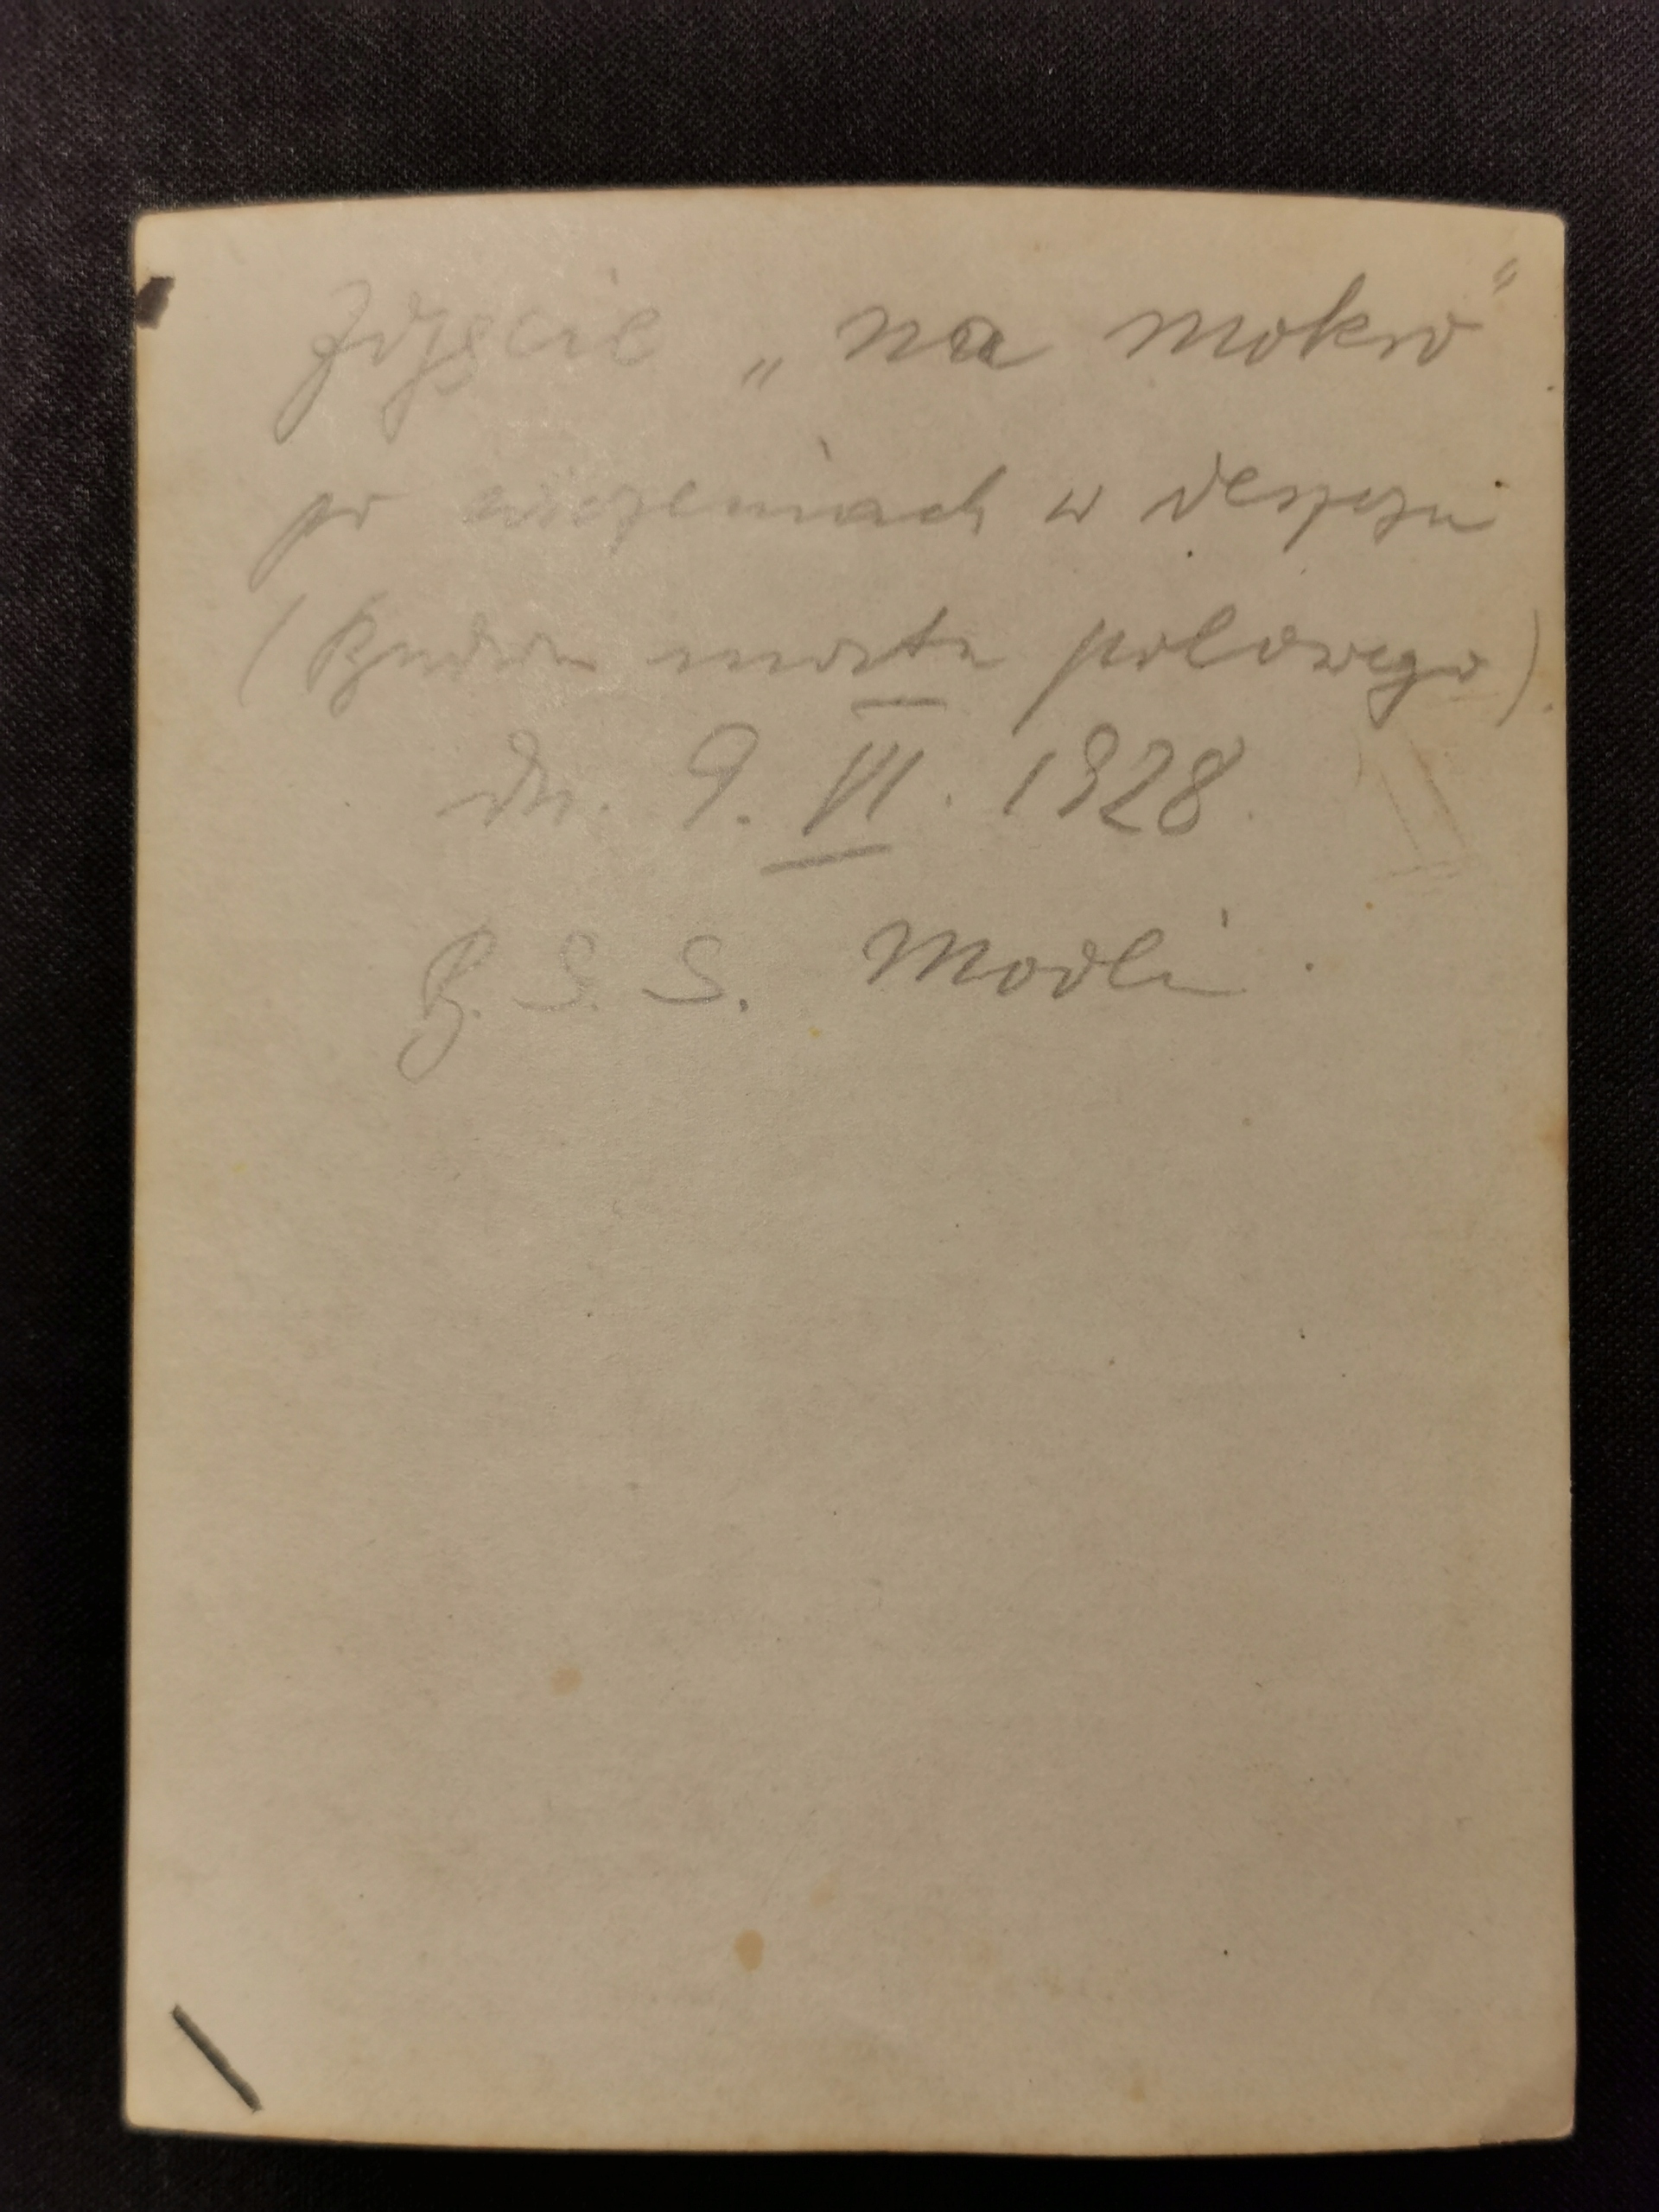 Zdjęcie „na mokro”
po ćwiczeniach w deszczu
(Budowa mostu polowego).
dn. 9. VI. 1928.
B. S. S. Modlin.